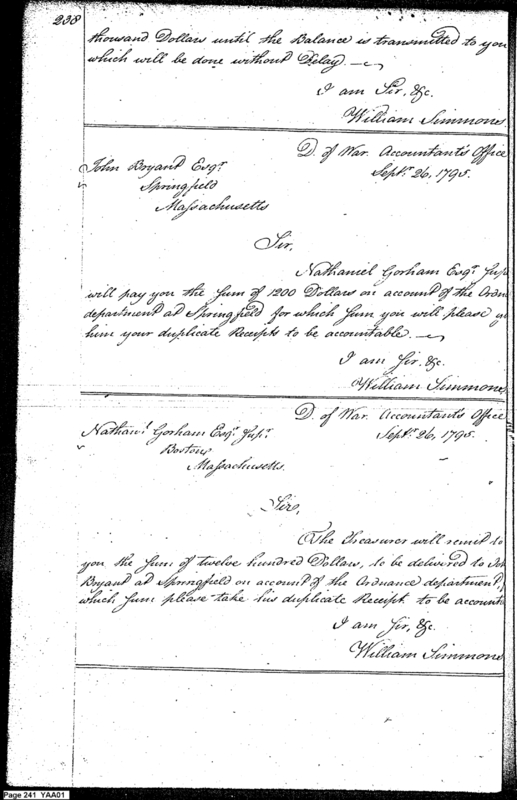 238
thousand Dollars until the Balance is transmitted to you
which will be done without Delay.
I am Sir, &c.
William Simmons
D. of War. Accountant's Office
Septr. 26, 1795.
John Bryant Esqr.
Springfield
Massachusetts
Sir,
Nathaniel Gorham Esqr. Supr
will pay you the Sum of 1200 Dollars on account of the Ordn
department at Springfield for which Sum you will please
him your duplicate Receipts to be accountable.
I am Sir, &c.
William Simmons
D. of War. Accountant's Office
Septr. 26, 1795.
Nathanl. Gorham Esqr. Supr.
Boston
Massachusetts.
Sir,
The Treasurer will remit to
you the Sum of twelve hundred Dollars, to be delivered to
Bryant at Springfield on account of the Ordnance department,
which Sum please take his duplicate Receipt to be account
I am Sir, &c.
William Simmons
Page 241 YAA01